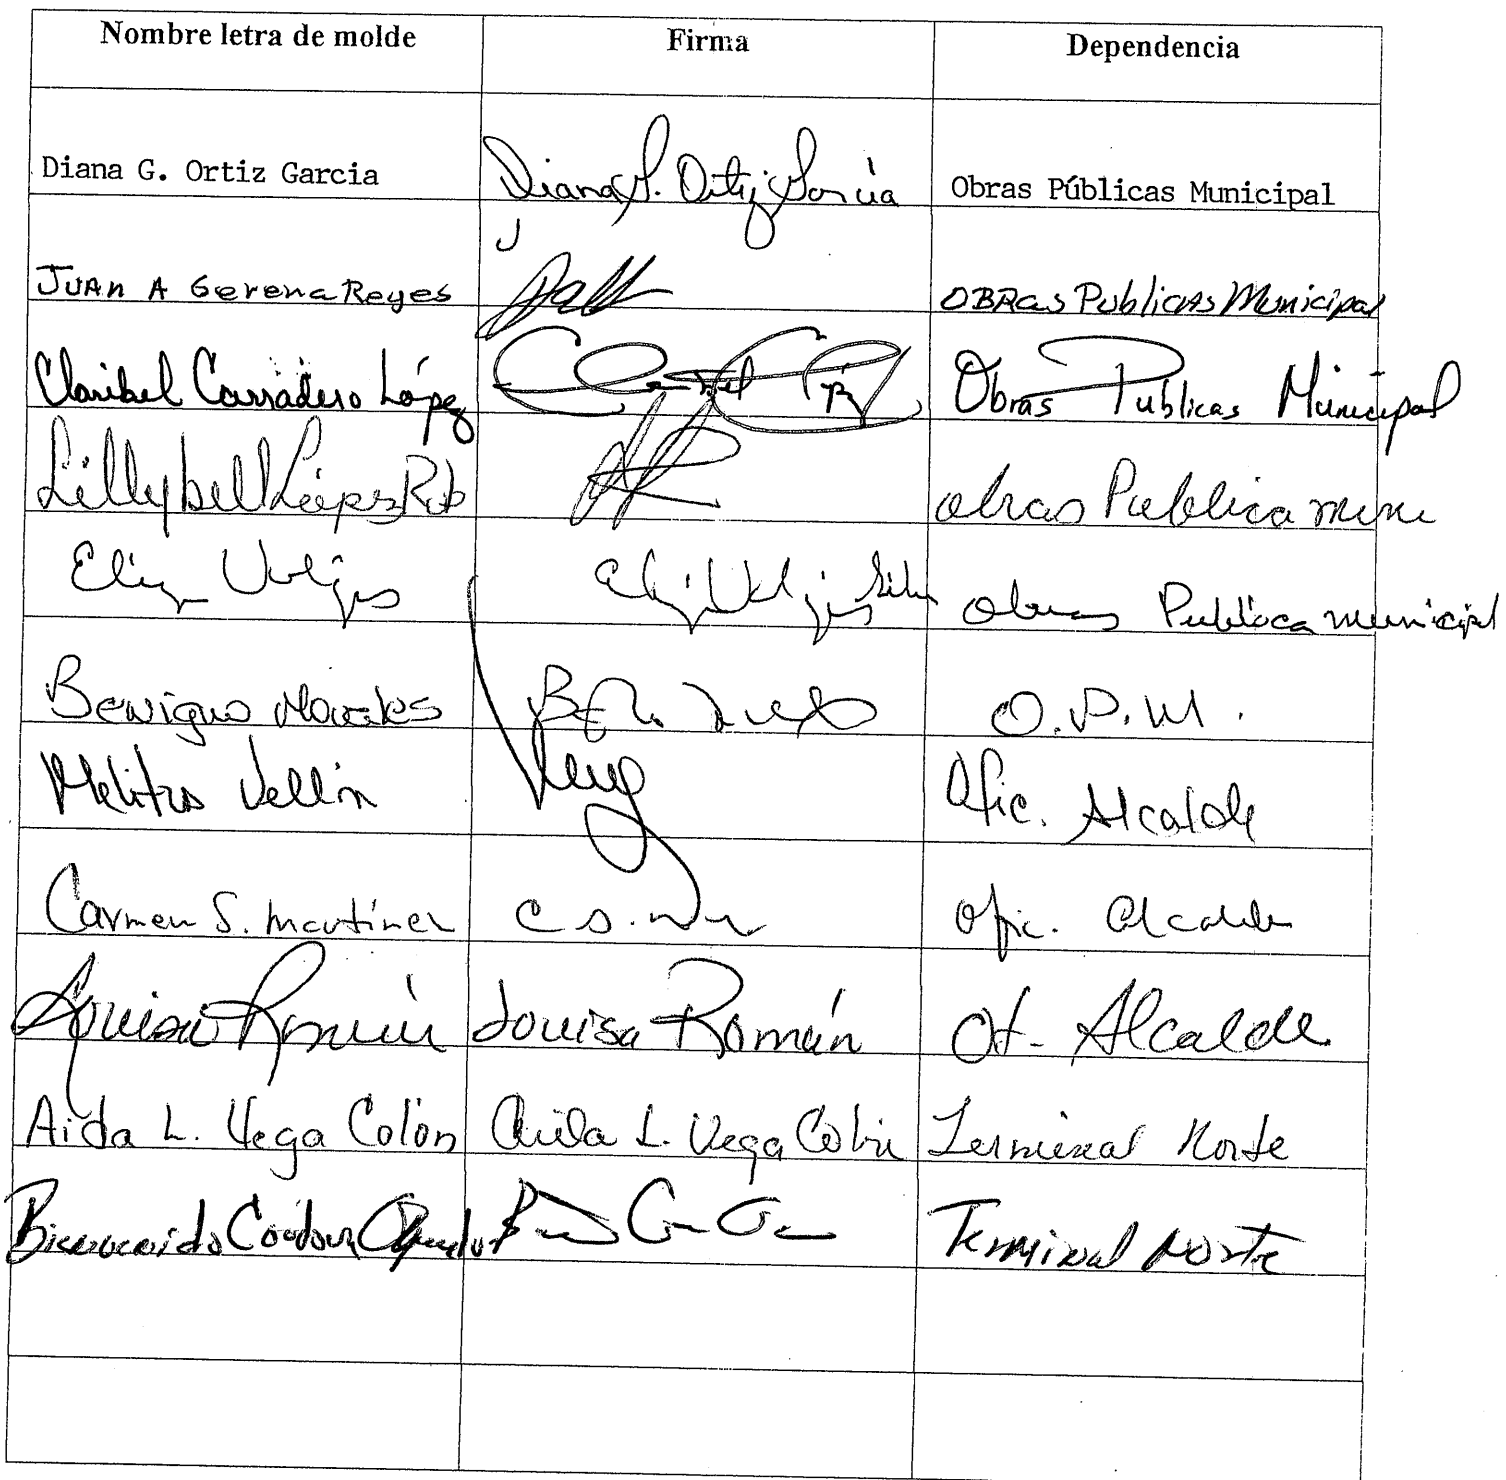 Nombre letra de molde Firma Dependencia
Diana G. Ortiz Garcia Diana G. Ortiz Garcia Obras Públicas Municipal
Juan A Gerena Reyes OBRas PublicAs Municipal
Claribel Carradero López Claribel Obras Publicas Municipal
Lillybell López Obras Publica muni
Obras Publica municipal
Benigno Morales O.P.M.
Melitza Vellón Ofic. Alcalde
Carmen S. Martinez C S. Ofic. Alcalde
Louisa Román Louisa Román Of- Alcalde
Aida L. Vega Colón Aida L. Vega Colón Terminal Norte
Bienvenido Cordova Terminal Norte